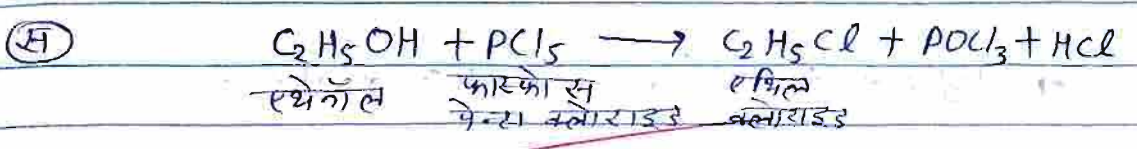 (स) C₂H₅OH + PCl₅ ⟶ C₂H₅Cl + POCl₃ + HCl
एथेनॉल फास्फोस एथिल
पेन्टा क्लोराइड क्लोराइड